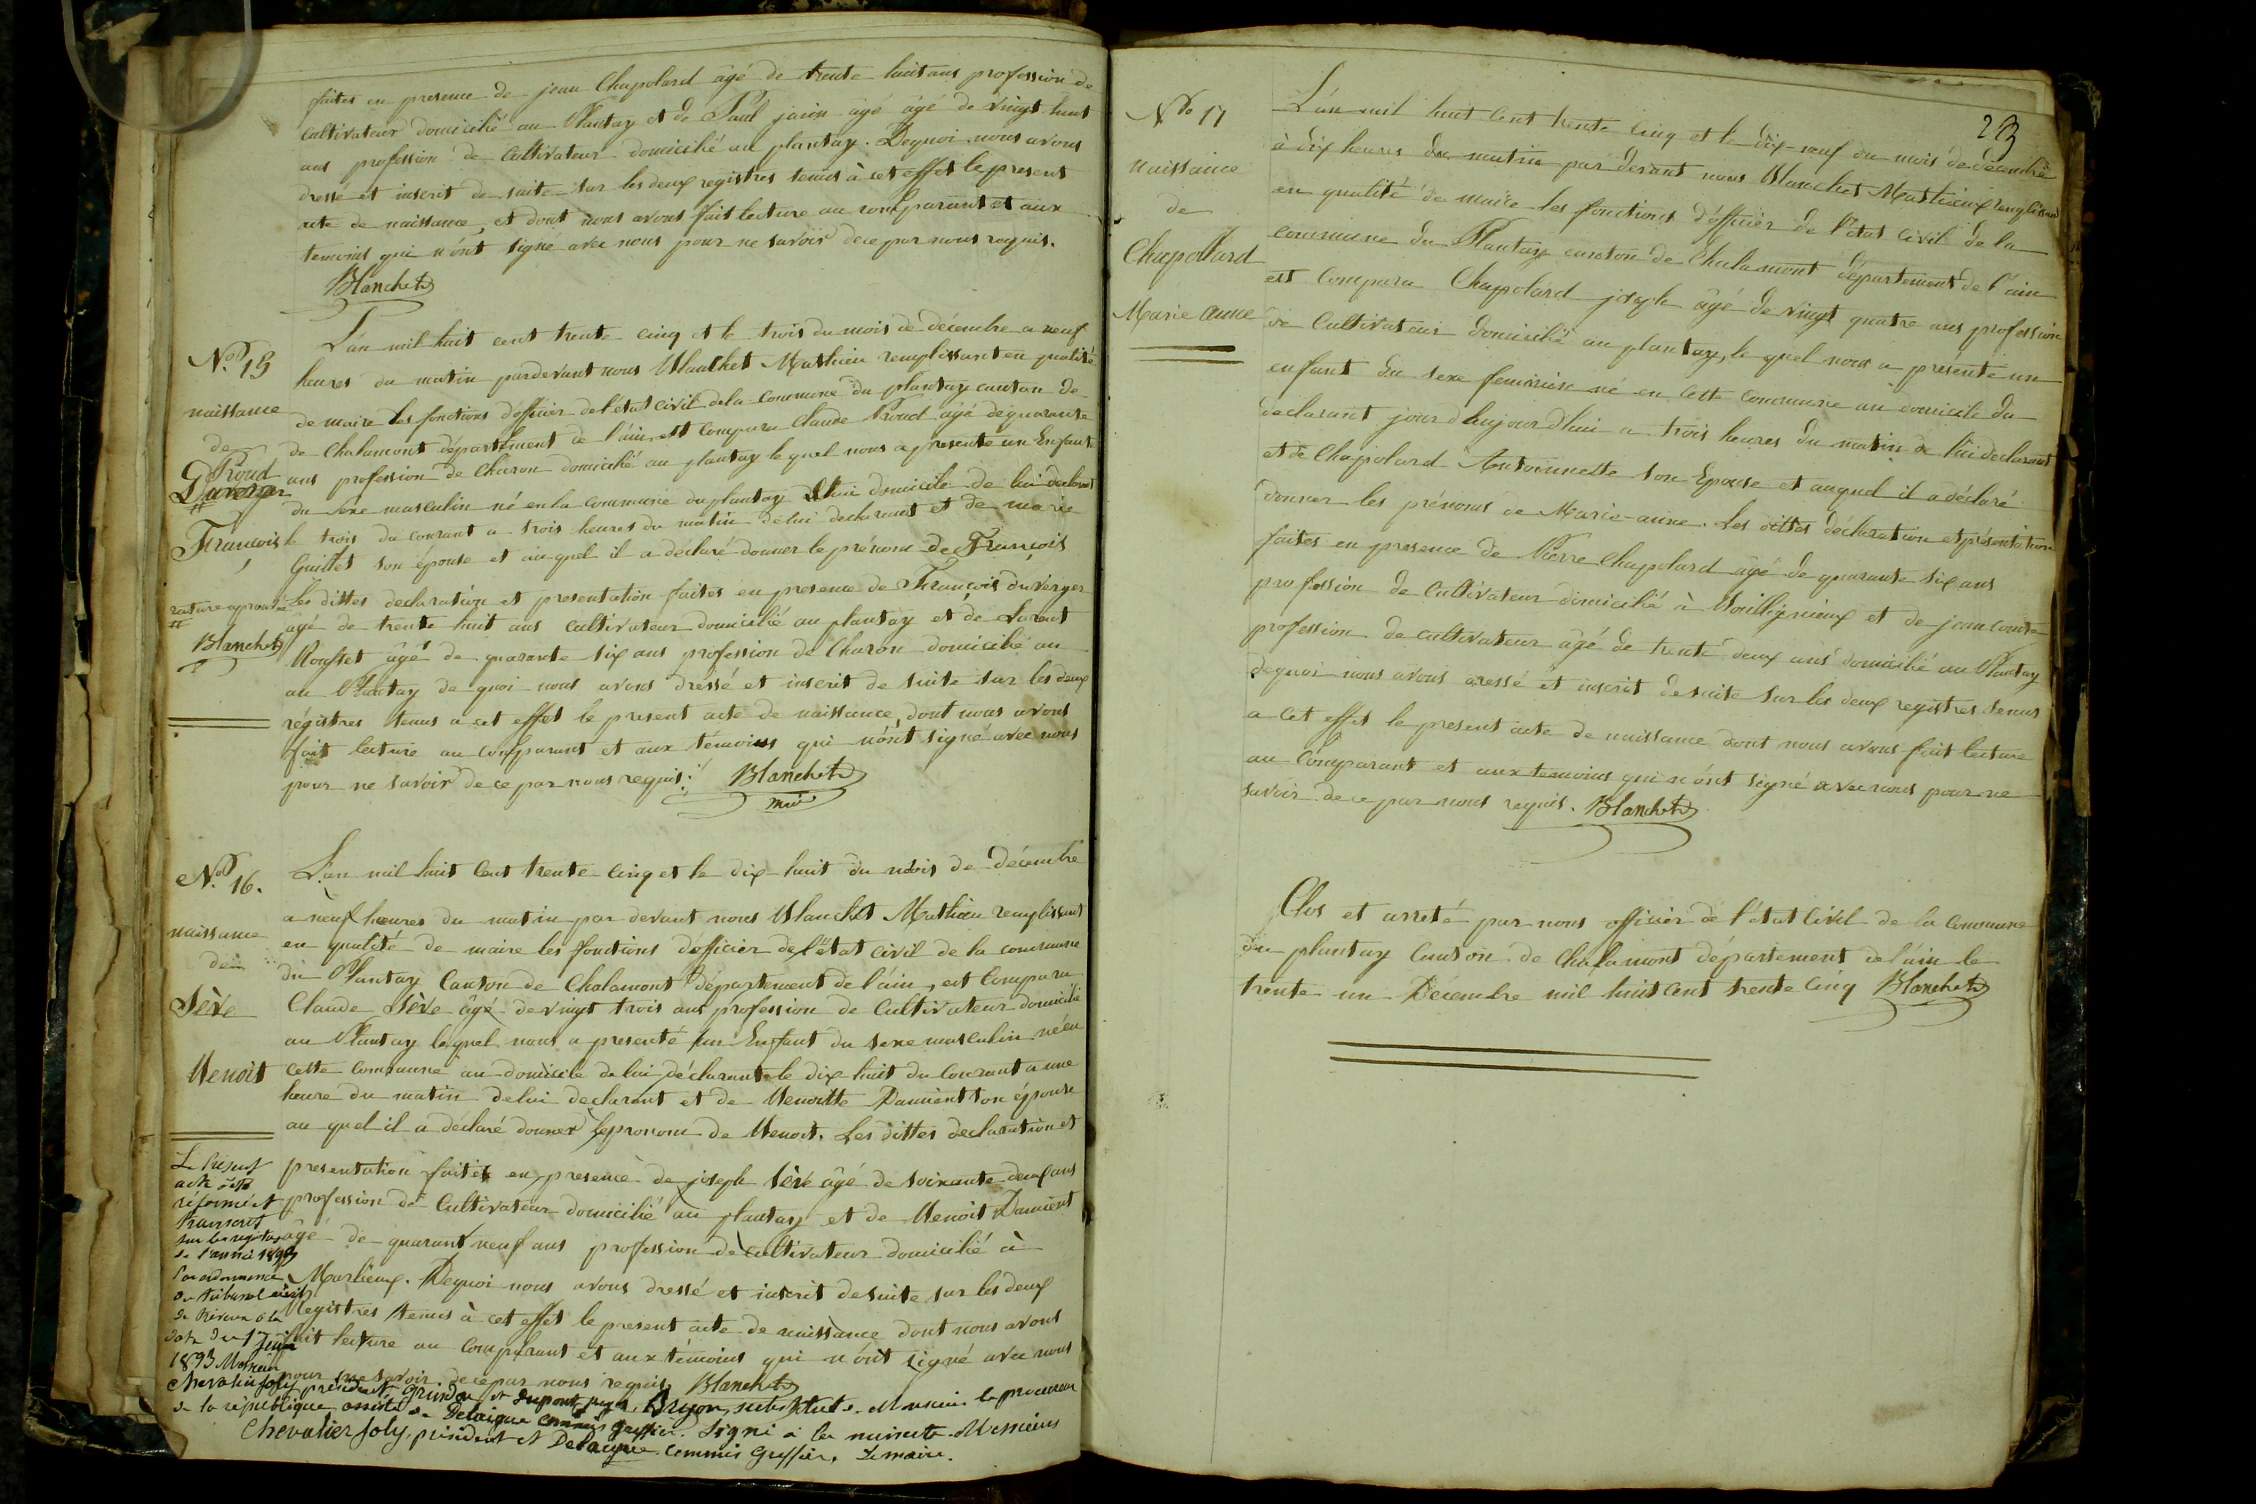 faites en presence de jean Chapolard âgé de trente huit ans profession de
cultivateur domicilié au Plantay et de Paul jaion âgé âgé de vingt huit
ans profession de cultivateur domicilié au plantay. Dequoi nous avons
dressé et inscrit de suite sur les deux registres tenus à cet effet le present
acte de naissance, et dont nous avons fait lecture au comparant et aux
temoins qui n'ont signé avec nous pour ne savoir de ce par nous requis.
Blanchet
No. 15
naissance
de
Proud
Duverger
#
François
rature aprouvée
#
Blanchet
L'an mil huit cent trente cinq et le trois du mois de décembre a neuf
heures du matin pardevant nous Blanchet Mathieu remplissant en qualité
de maire les fonctions d'officier de l'état civil de la commune du plantay canton de
de Chalamont département de l'ain, est comparu Claude Proud agé de quarante
ans profession de Charon domicilié au plantay le quel nous a presenté un Enfant
du sexe masculin né en la commune du plantay domicile de lui declarant
le trois du courant a trois heures du matin de lui declarant et de marie
Guillet son épouse et auquel il a déclaré donner le prénom de François
Les dittes declaration et presentation faites en presence de François duverger
agé de trente huit ans cultivateur domicilié au plantay et de Laurent
âgé de quarante six ans profession de Charon domicilié au
au Plantay de quoi nous avons dressé et inscrit de suite sur les deux
régistres tenus a cet effet le present acte de naissance, dont nous avons
fait lecture au comparant et aux témoins qui n'ont signé avec nous
pour ne savoir de ce par nous requis. Blanchet
No. 16.
naissance
de
Sève
Benoit
L'an mil huit cent trente cinq et le dix huit du mois de décembre
a neuf heures du matin par devant nous Blanchet Mathieu remplissant
en qualité de maire les fonctions d'officier de l'état civil de la commune
du Plantay Canton de Chalamont département de l'ain, est comparu
Claude Sève âgé de vingt trois ans profession de Cultivateur domicilié
au Plantay lequel nous a presenté un Enfant du sexe masculin né en
cette commune au domicile de lui déclarant le dix huit du Courant a une
heure du matin de lui declarant et de Benoitte Damient son épouse
au quel il a déclaré donner le pronom de Benoit. Les dittes declaration et
presentation faites en presence de joseph Sève âgé de soixante deux ans
profession de Cultivateur domicilié au plantay et de Benoit Damient
âgé de quarant neuf ans profession de cultivateur domicilié à
Marlieux. Dequoi nous avons dressé et inscrit de suite sur les deux
Registres tenus à cet effet le present acte de naissance dont nous avons
fait lecture au comparant et aux témoins qui n'ont signé avec nous
pour ne savoir de ce par nous requis Blanchet
Le présent
acte a été
réformé et
transcrit
sur les registres
de l'année 1893
par ordonnance
du tribunal civil
de Trévoux à la
date du 1er juin
1893 Messieurs
Chevalier Joly président, Grindon et Dupont juges, Bryon, substitut de Monsieur le procureur
de la république assisté de Delaigue commis greffier. Signé à la minute Messieurs
Chevalier Joly, président et Delaigue commis Greffier. Le maire.
23
No 17
naissance
de
Chapollard
Marie anne
L'an mil huit cent trente cinq et le dix-neuf du mois de décembre
à dix heures du matin par devant nous Blanchet Mathieu remplissant
en qualité de maire les fonctions d'officier de l'état civil de la
commune du Plantay canton de Chalamont département de l'ain
est comparu Chapolard joseph âgé de vingt quatre ans profession
de Cultivateur domicilié au plantay, le quel nous a présenté un
enfant du sexe feminin né en cette commune au domicile du
declarant jour d'aujourd'hui a trois heures du matin de lui declarant
et de Chapolard Antoinnette son Epouse et auquel il a déclaré
donner les prénoms de Marie-anne. Les dittes déclaration et présentation
faites en presence de Pierre Chapolard âgé de quarante six ans
profession de Cultivateur domicilié à Bouligneux et de jean comte
profession de cultivateur âgé de trente deux ans domicilié au Plantay
dequoi nous avons dressé et inscrit de suite sur les deux registres tenus
a cet effet le present acte de naissance dont nous avons fait lecture
au Comparant et aux temoins qui n'ont signé avec nous pour ne
savoir de ce par nous requis. Blanchet
Clos et arreté par nous officier de l'état civil de la commune
du plantay Canton de Chalamont département de l'ain le
trente un Décembre mil huit cent trente cinq Blanchet